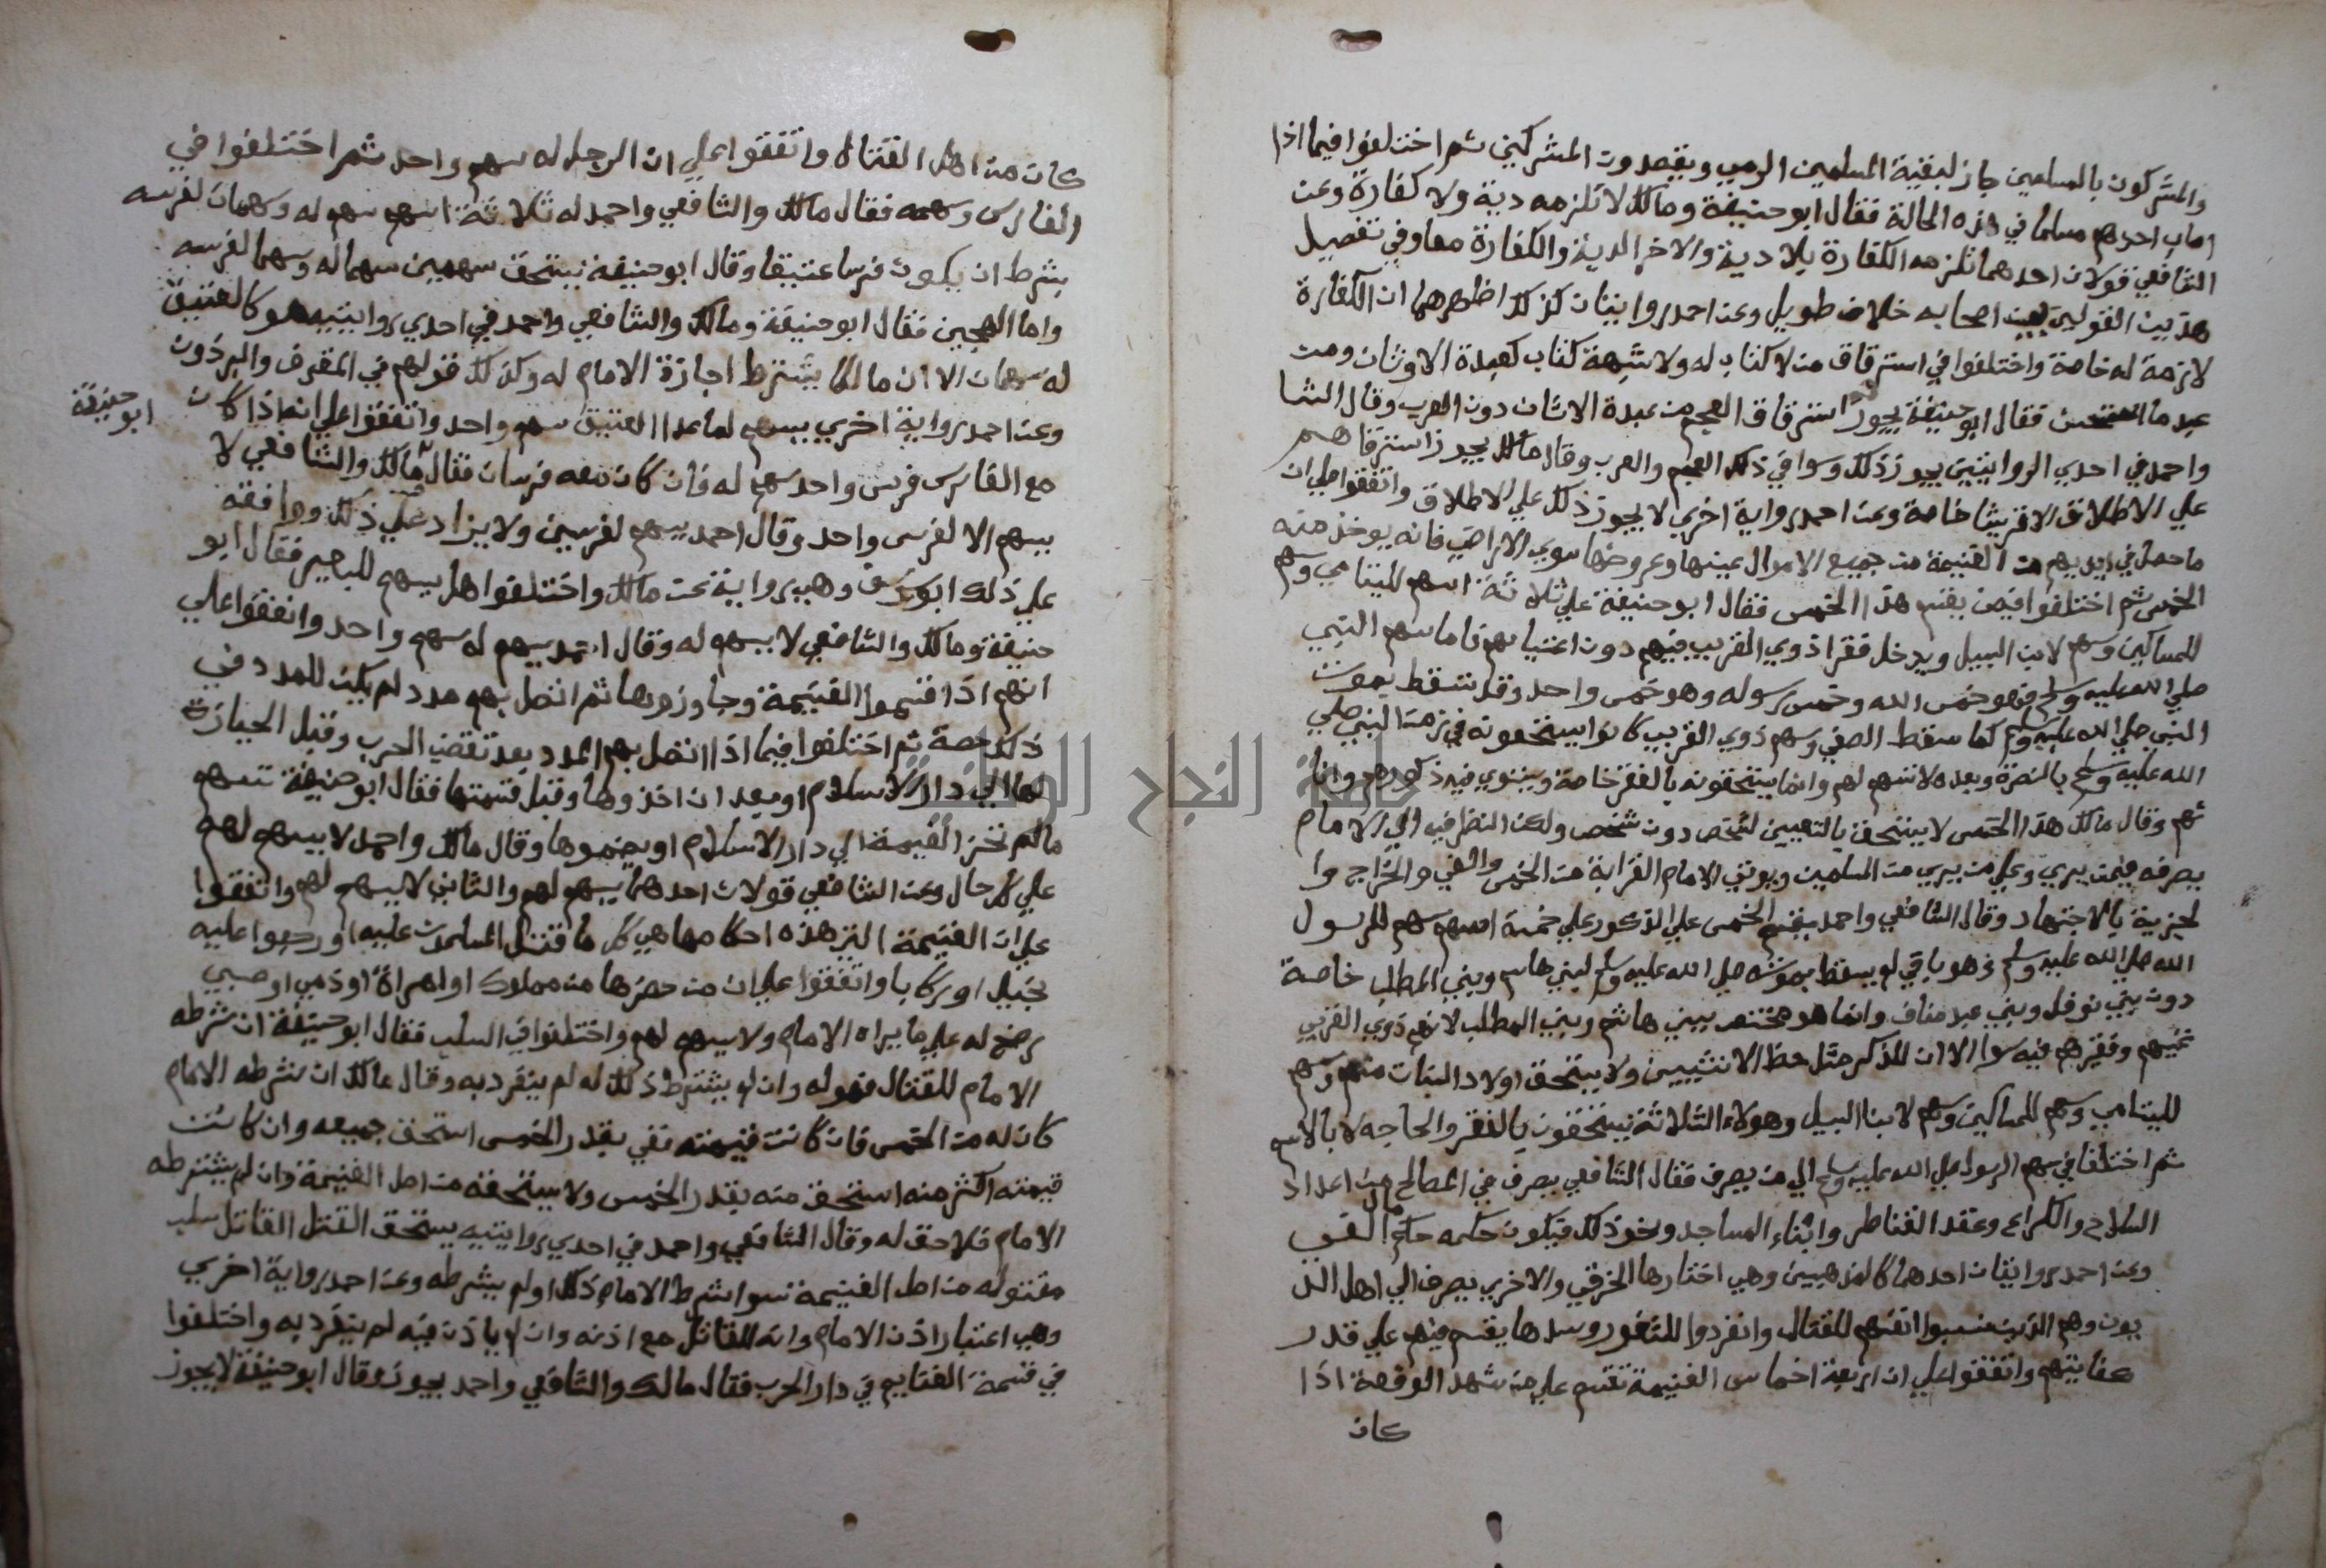 والمشركون بالمسلمين جاز لبقية المسلمين الرمي ويقصدون المشركين ثم اختلفوا فيما اذا
اصاب احدهم مسلما في هذه الحالة فقال ابو حنيفة ومالك لا تلزمه دية ولا كفارة وعن
الشافعي قولان احدهما تلزمه الكفارة بلا دية والاخر الدية والكفارة معا وفي تفصيل
هذين القولين بين اصحابه خلاف طويل وعن احمد روايتان كذلك اظهرهما ان الكفارة
لازمة له خاصة واختلفوا في استرقاق من لا كتاب له ولا شبهة كتاب كعبدة الاوثان ومن
عبد ما استحسن فقال ابو حنيفة يجوز استرقاق العجم من عبدة الاوثان دون العرب وقال الشا
واحمد في احدي الروايتين يجوز ذلك وسوا في ذلك العجم والعرب وقال مالك يجوز استرقاقهم
علي الاطلاق الا قريشا خاصة وعن احمد رواية اخري لا يجوز ذلك علي الاطلاق واتفقوا علي ان
ما حصل في ايديهم من الغنيمة من جميع الاموال عينها وعروضها سوي الاراضي فانه يوخذ منه
الخمس ثم اختلفوا فيمن يقسم هذا الخمس فقال ابو حنيفة علي ثلاثة اسهم لليتامي وسهم
للمساكين وسهم لابن السبيل ويدخل فقرا ذوي القربي فيهم دون اغنيايهم فاما سهم النبي
صلي الله عليه وسلم فهو خمس الله وخمس رسوله وهو خمس واحد وقد سقط بموت
النبي صلي الله عليه وسلم كما سقط الصفي وسهم ذوي القربي كانوا يستحقونه في زمن النبي صلي
الله عليه وسلم بالنصرة وبعده لا سهم لهم وانما يستحقونه بالفقر خاصة ويستوي فيه ذكورهم واناث
ثهم وقال مالك هذا الخمس لا يستحق بالتعيين لشخص دون شخص ولكن النظر فيه الي الامام
يصرفه فيمن يري وعلي من يري من المسلمين ويوتي الامام القرابة من الخمس والفي والخراج وا
لجزية بالاجتهاد وقال الشافعي واحمد يقسم الخمس علي المذكور علي خمسة اسهم سهم للرسول
الله صلي الله عليه وسلم فهو باقي لم يسقط بموته صلي الله عليه وسلم لبني هاشم وبني المطلب خاصة
دون بني نوفل وبني عبد مناف وانما هو مختص ببني هاشم وبني المطلب لانهم ذوي القربي
غنيهم وفقيرهم فيه سوا الا ان للذكر مثل حظ الانثيين ولا يستحق اولاد البنات منهم وسهم
لليتامي وسهم للمساكين وسهم لابنا السبيل وهولاء الثلاثة يستحقون بالفقر والحاجه لا بالاسم
ثم اختلفا في سهم الرسول صلي الله عليه وسلم الي من يصرف فقال الشافعي يصرف في المصالح من اعداد
السلاح والكراع وعقد القناطر وابناء المساجد ونحو ذلك فيكون حكمه حكم مال الفي
وعن احمد روايتان احدهما كالمذهبين وهي اختارها الخرقي والاخري يصرف الي اهل الد
يون وهم الذين نصبوا انفسهم للقتال وانفردوا للثغور وسدها يقسم فيهم علي قدر
كفايتهم واتفقوا علي ان اربعة اخماس الغنيمة تقسم علي من شهد الوقعة اذا
كان
كان من اهل القتال واتفقوا علي ان الرجل له سهم واحد ثم اختلفوا في
الفارس وسهمه فقال مالك والشافعي واحمد له ثلاثة اسهم سهم له وسهمان لفرسه
بشرط ان يكون فرسا عتيقا وقال ابو حنيفة يستحق سهمين سهما له وسهما لفرسه
واما الهجين فقال ابو حنيفة ومالك والشافعي واحمد في احدي روايتيه هو كالعتيق
له سهمان الا ان مالكا يشترط اجازة الامام له وكذلك قولهم في المقرف والبرذون
وعن احمد رواية اخري يسهم لما عدا العتيق سهم واحد واتفقوا علي انه اذا كان
ابو حنيفة
مع الفارس فرس واحد سهم له فان كان معه فرسان فقال مالك والشافعي لا
يسهم الا لفرس واحد وقال احمد يسهم لفرسين ولا يزاد علي ذلك ووافقه
علي ذلك ابو يوسف وهي رواية عن مالك واختلفوا هل يسهم للبعير فقال ابو
حنيفة ومالك والشافعي لا يسهم له وقال احمد يسهم له سهم واحد واتفقوا علي
انهم اذا قسموا الغنيمة وحازوها ثم اتصل بهم مدد لم يكن للمدد في
ذلك حصة ثم اختلفوا فيما اذا اتصل بهم المدد بعد تقضي الحرب وقبل الحيازة
لها الي دار الاسلام او بعد ان اخذوها وقبل قسمتها فقال ابو حنيفة تسهم
مالم تحز الغنيمة الي دار الاسلام او يضموها وقال مالك واحمد لا يسهم لهم
علي كل حال وعن الشافعي قولان احدهما يسهم لهم والثاني لا يسهم لهم واتفقوا
علي ان الغنيمة التي هذه احكامها هي كل ما قتل المسلمون عليه او رجعوا عليه
بخيل او ركاب واتفقوا علي ان من حضرها من مملوك او امراة او ذمي او صبي
رضخ له علي ما يراه الامام ولا يسهم لهم واختلفوا في السلب فقال ابو حنيفة ان شرطه
الامام للقتال فهو له وان لم يشترط ذلك له لم ينفرد به وقال مالك ان شرطه الامام
كان له من الخمس فان كانت قيمته تفي بقدر الخمس استحق جميعه وان كانت
قيمته اكثر منه استحق منه بقدر الخمس ولا يستحقه من اصل الغنيمة وان لم يشترطه
الامام فلا حق له وقال الشافعي واحمد في احدي روايتيه يستحق القتل القاتل سلب
مقتوله من اصل الغنيمة سوا شرط الامام ذلك او لم يشرطه وعن احمد رواية اخري
وهي اعتبار اذن الامام وانه للقاتل مع اذنه وان لم ياذن فيه لم ينفرد به واختلفوا
في قسمة الغنايم في دار الحرب فقال مالك والشافعي واحمد يجوز وقال ابو حنيفة لا يجوز
جامعة النجاح الوطنية